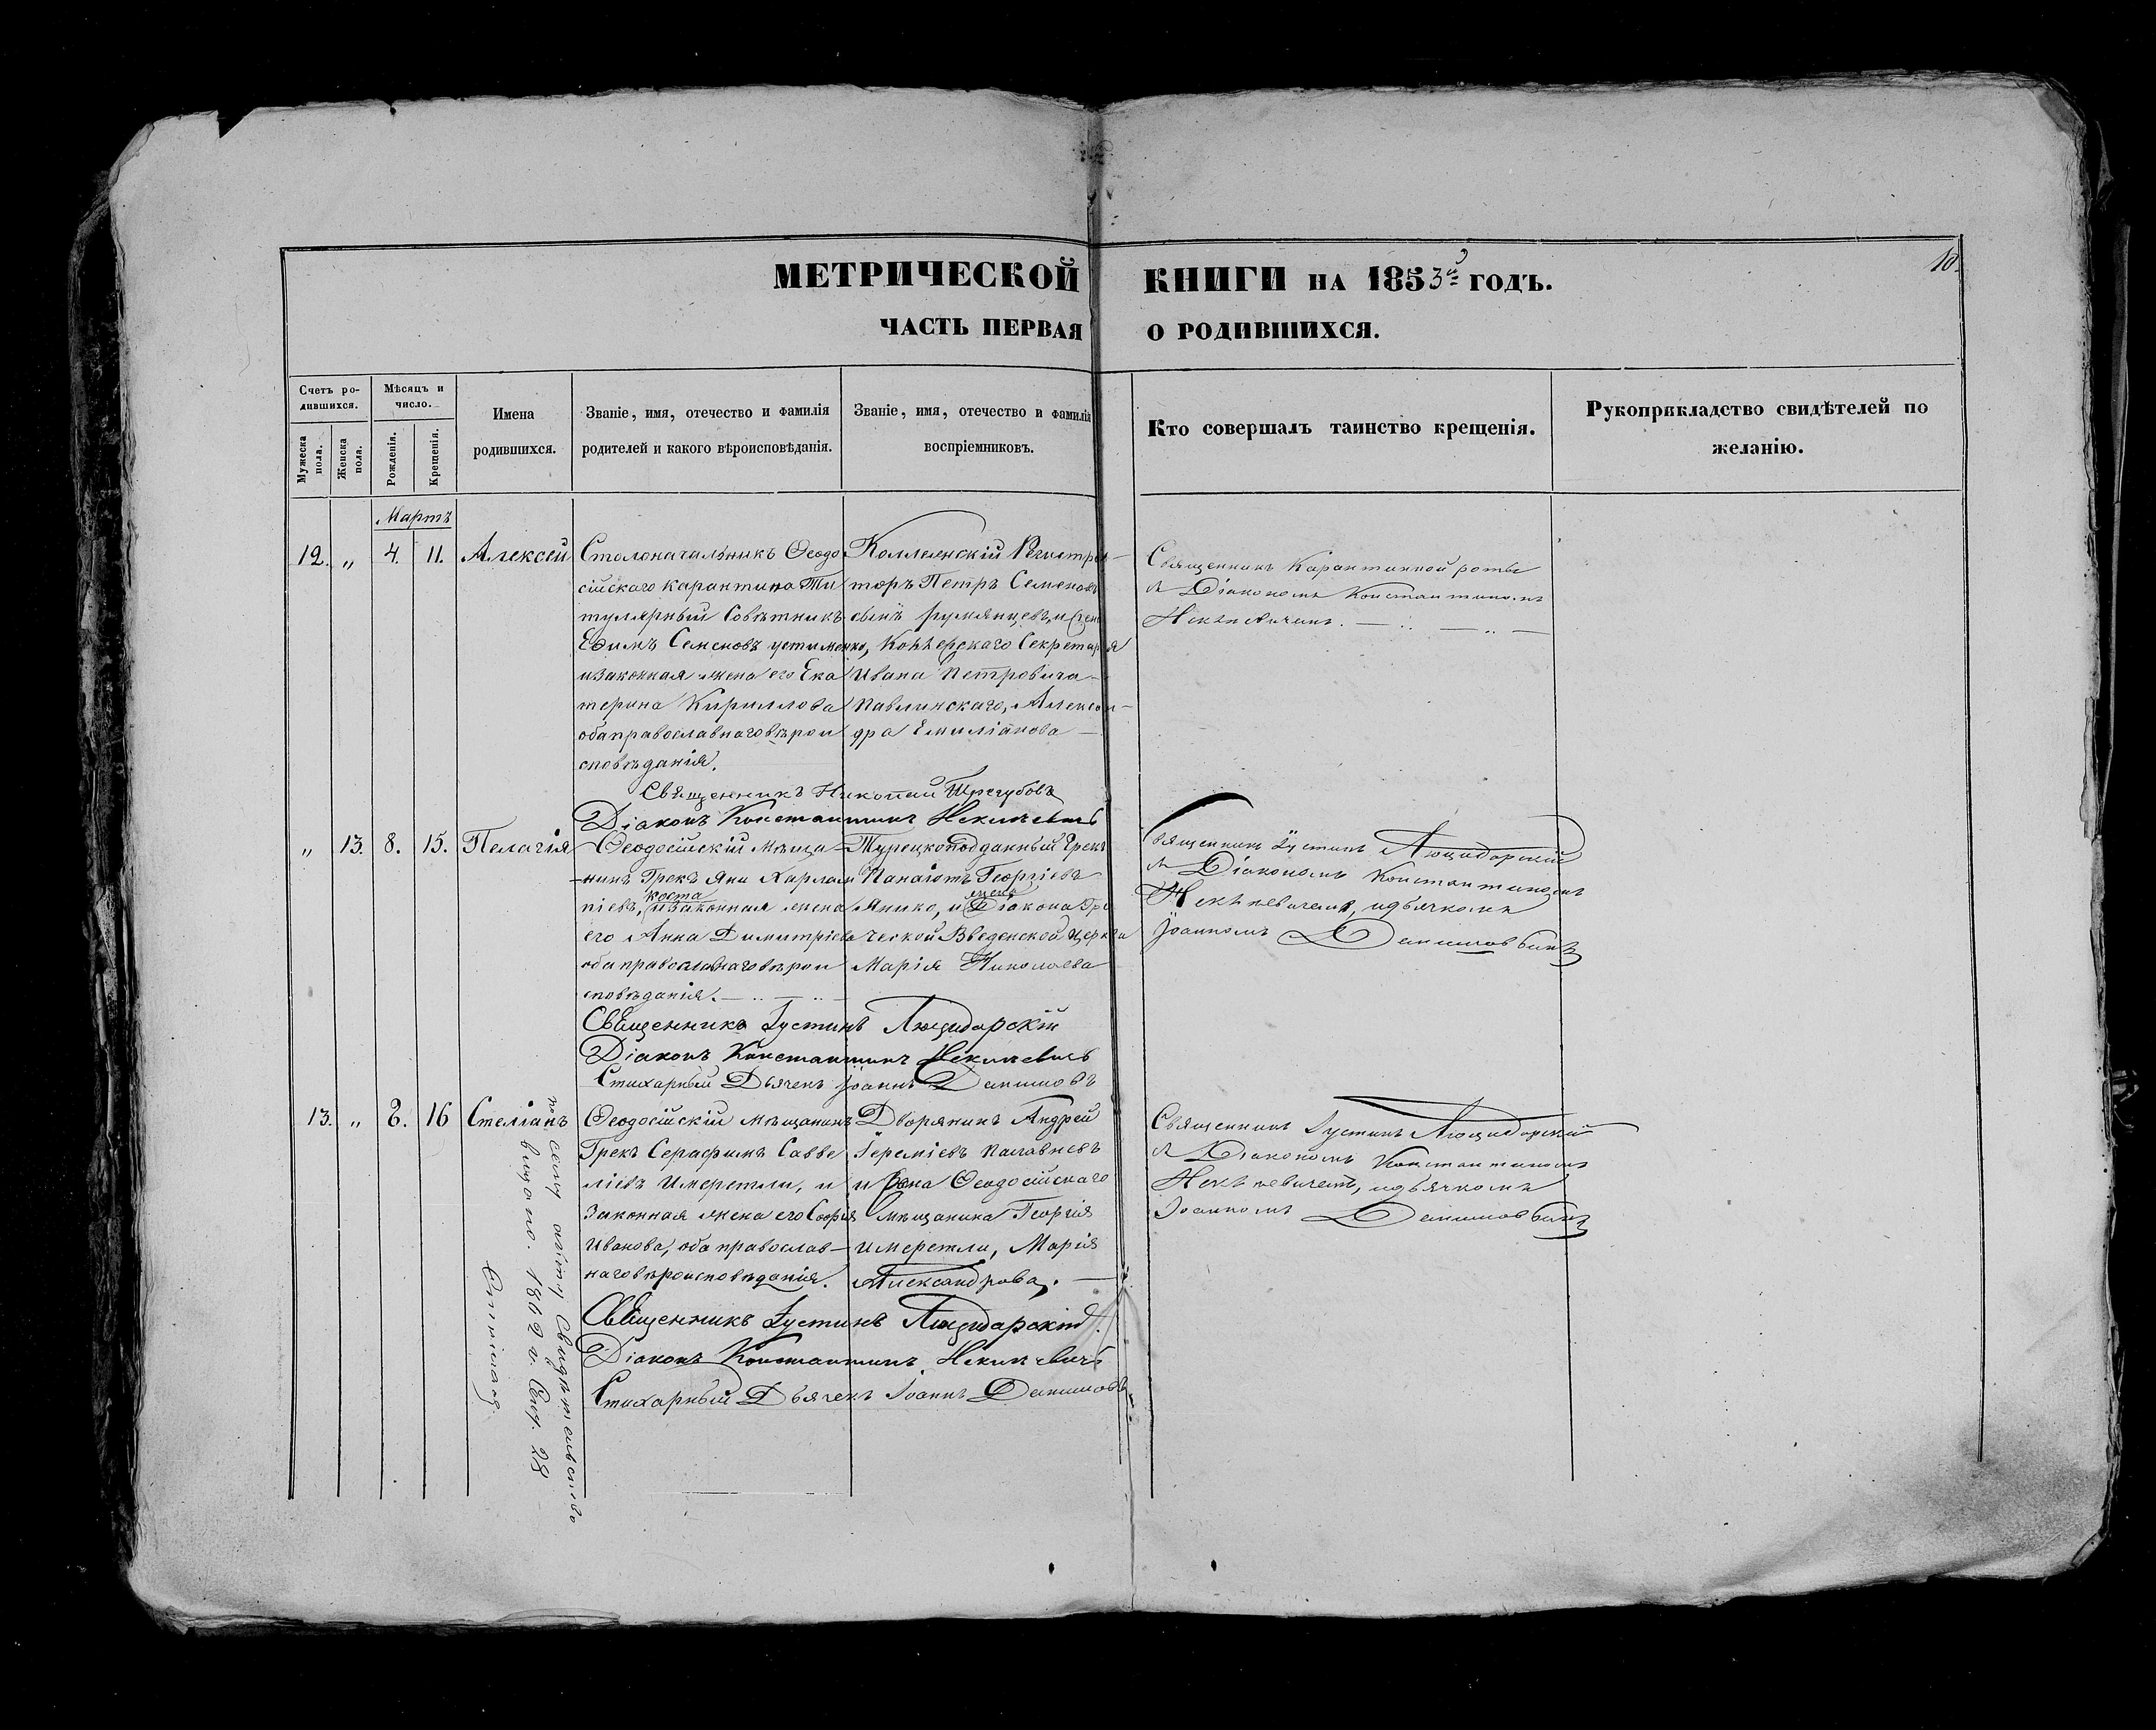 10.
МЕТРИЧЕСКОЙ КНИГИ НА 1853й ГОДЪ.
ЧАСТЬ ПЕРВАЯ О РОДИВШИХСЯ.
Счетъ родившихся.
Мужеска пола.
Женска пола.
Мѣсяцъ и число.
Рожденія.
Крещенія.
Имена
родившихся.
Званіе, имя, отечество и фамилія
родителей и какого вѣроисповѣданія.
Званіе, имя, отечество и фамилія
воспріемниковъ.
Кто совершалъ таинство крещенія.
Рукоприкладство свидѣтелей по
желанію.
Мартъ
12. „ 4. 11. Алексѣй
Столоначальникъ Ѳеодо
сійскаго карантина Ти
тулярный Совѣтникъ
Ефимъ Семеновъ Устименко,
и законная жена его Ека
терина Кириллова
оба православнаго вѣрои
сповѣданія.
Коллежскій Регистра
торъ Петръ Семеновъ
сынъ Румянцевъ, и жена
Коллежскаго Секретаря
Ивана Петровича
Павлинскаго, Алексан-
дра Емиліанова
Священникъ Карантинной роты
съ Діакономъ Константиномъ
Некѣлевичемъ.
Священникъ Николай Трегубовъ
Діаконъ Константинъ Некилевичъ
„ 13. 8. 15. Пелагія
Ѳеодосійскій Мѣща-
нинъ Грекъ Яни Харлам
піевъ, Коста
и законная жена
его Анна Димитріева
оба православнаго вѣрои
сповѣданія.
Турецкоподданный Грекъ
Панаіотъ Георгіевъ
Янико, и жена Діакона Гре
ческой Введенской Церкви
Марія Николаева
Священникъ Іустинъ Люцидарскій
съ Діакономъ Константиномъ
Некѣлевичемъ, и дьячкомъ
Іоанномъ Даниловымъ
Священникъ Іустинъ Люцидарскій
Діаконъ Константинъ Некилевичъ
Стихарный Дьячекъ Іоаннъ Даниловъ
13. „ 8. 16 Стеліанъ
Ѳеодосійскій мѣщанинъ
Грекъ Серафимъ Савве
ліевъ Имеретли, и
законная жена его Софія
Иванова, оба православ-
наго вѣроисповѣданія.
Дворянинъ Андрей
Іереміевъ
и жена Ѳеодосійскаго
Мѣщанина Георгія
Имеретли, Марія
Александрова.
Священникъ Іустинъ Люцидарскій
съ Діакономъ Константиномъ
Некѣлевичемъ, и дьячкомъ
Іоанномъ Даниловымъ
Священникъ Іустинъ Люцидарскій.
Діаконъ Константинъ Некилевичъ
Стихарный Дьячекъ Іоаннъ Даниловъ
по сему акту свидѣтельство
выдано. 1862 г. 28